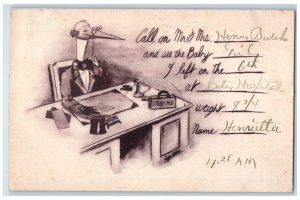 Call on Mr & Mrs. Henry
and see the Baby Girl
I left on the 6th
at Hospital
weight 8 3/4
Name Henrietta
STORK M.D.